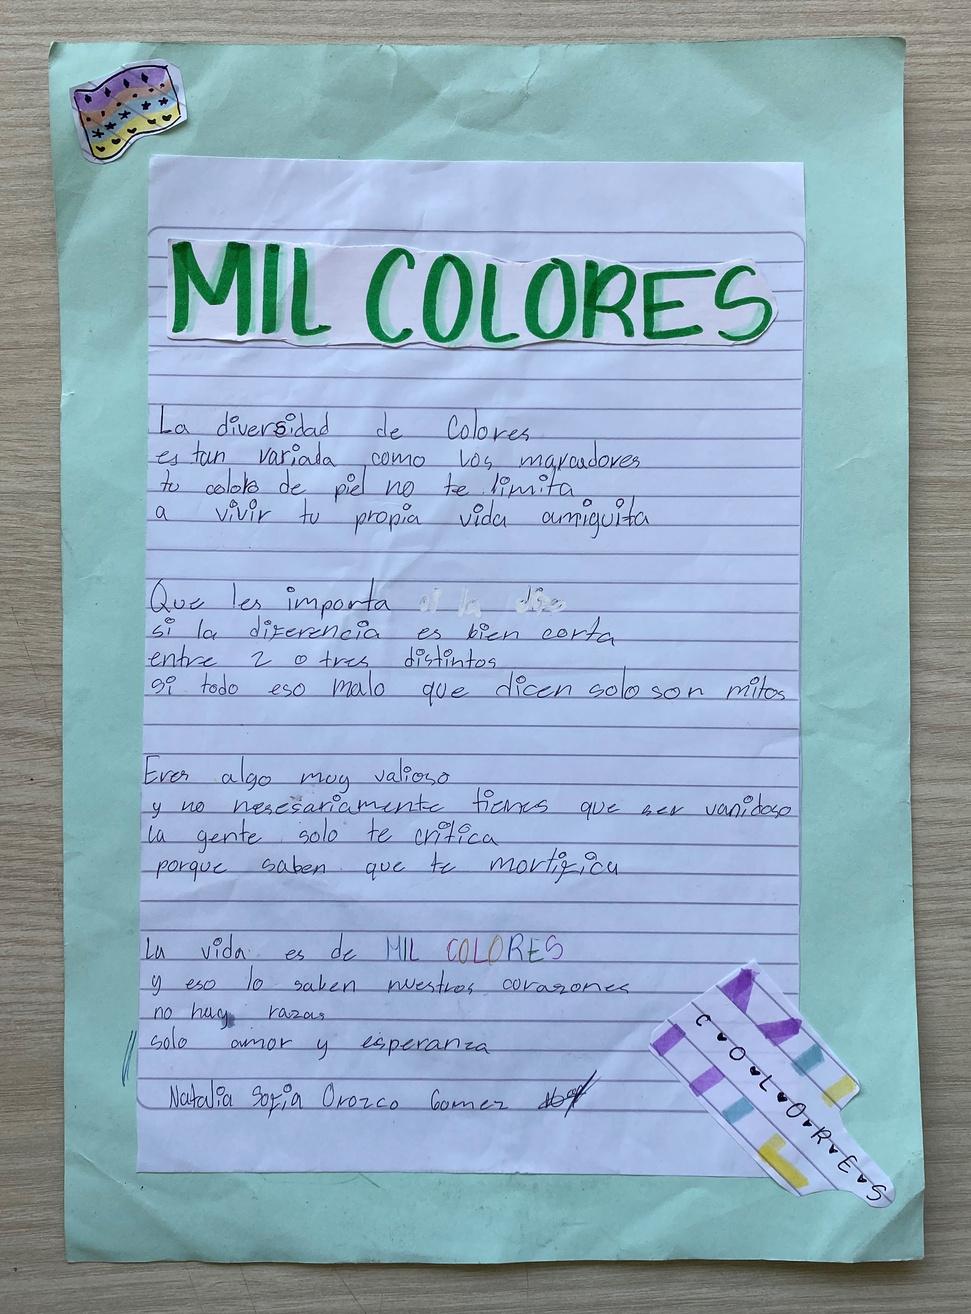 MIL COLORES
La diversidad de Colores
es tan variada como los marcadores
tu color de piel no te limita
a vivir tu propia vida amiguita
Que les importa
si la diferencia es bien corta
entre 2 o tres distintos
si todo eso malo que dicen solo son mitos
Eres algo muy valioso
y no nesesariamente tienes que ser vanidoso
la gente solo te critica
porque saben que te mortifica
La vida es de MIL COLORES
y eso lo saben nuestros corazones
no hay razas
solo amor y esperanza
Natalia Sofia Orozco Gomez
COLORES